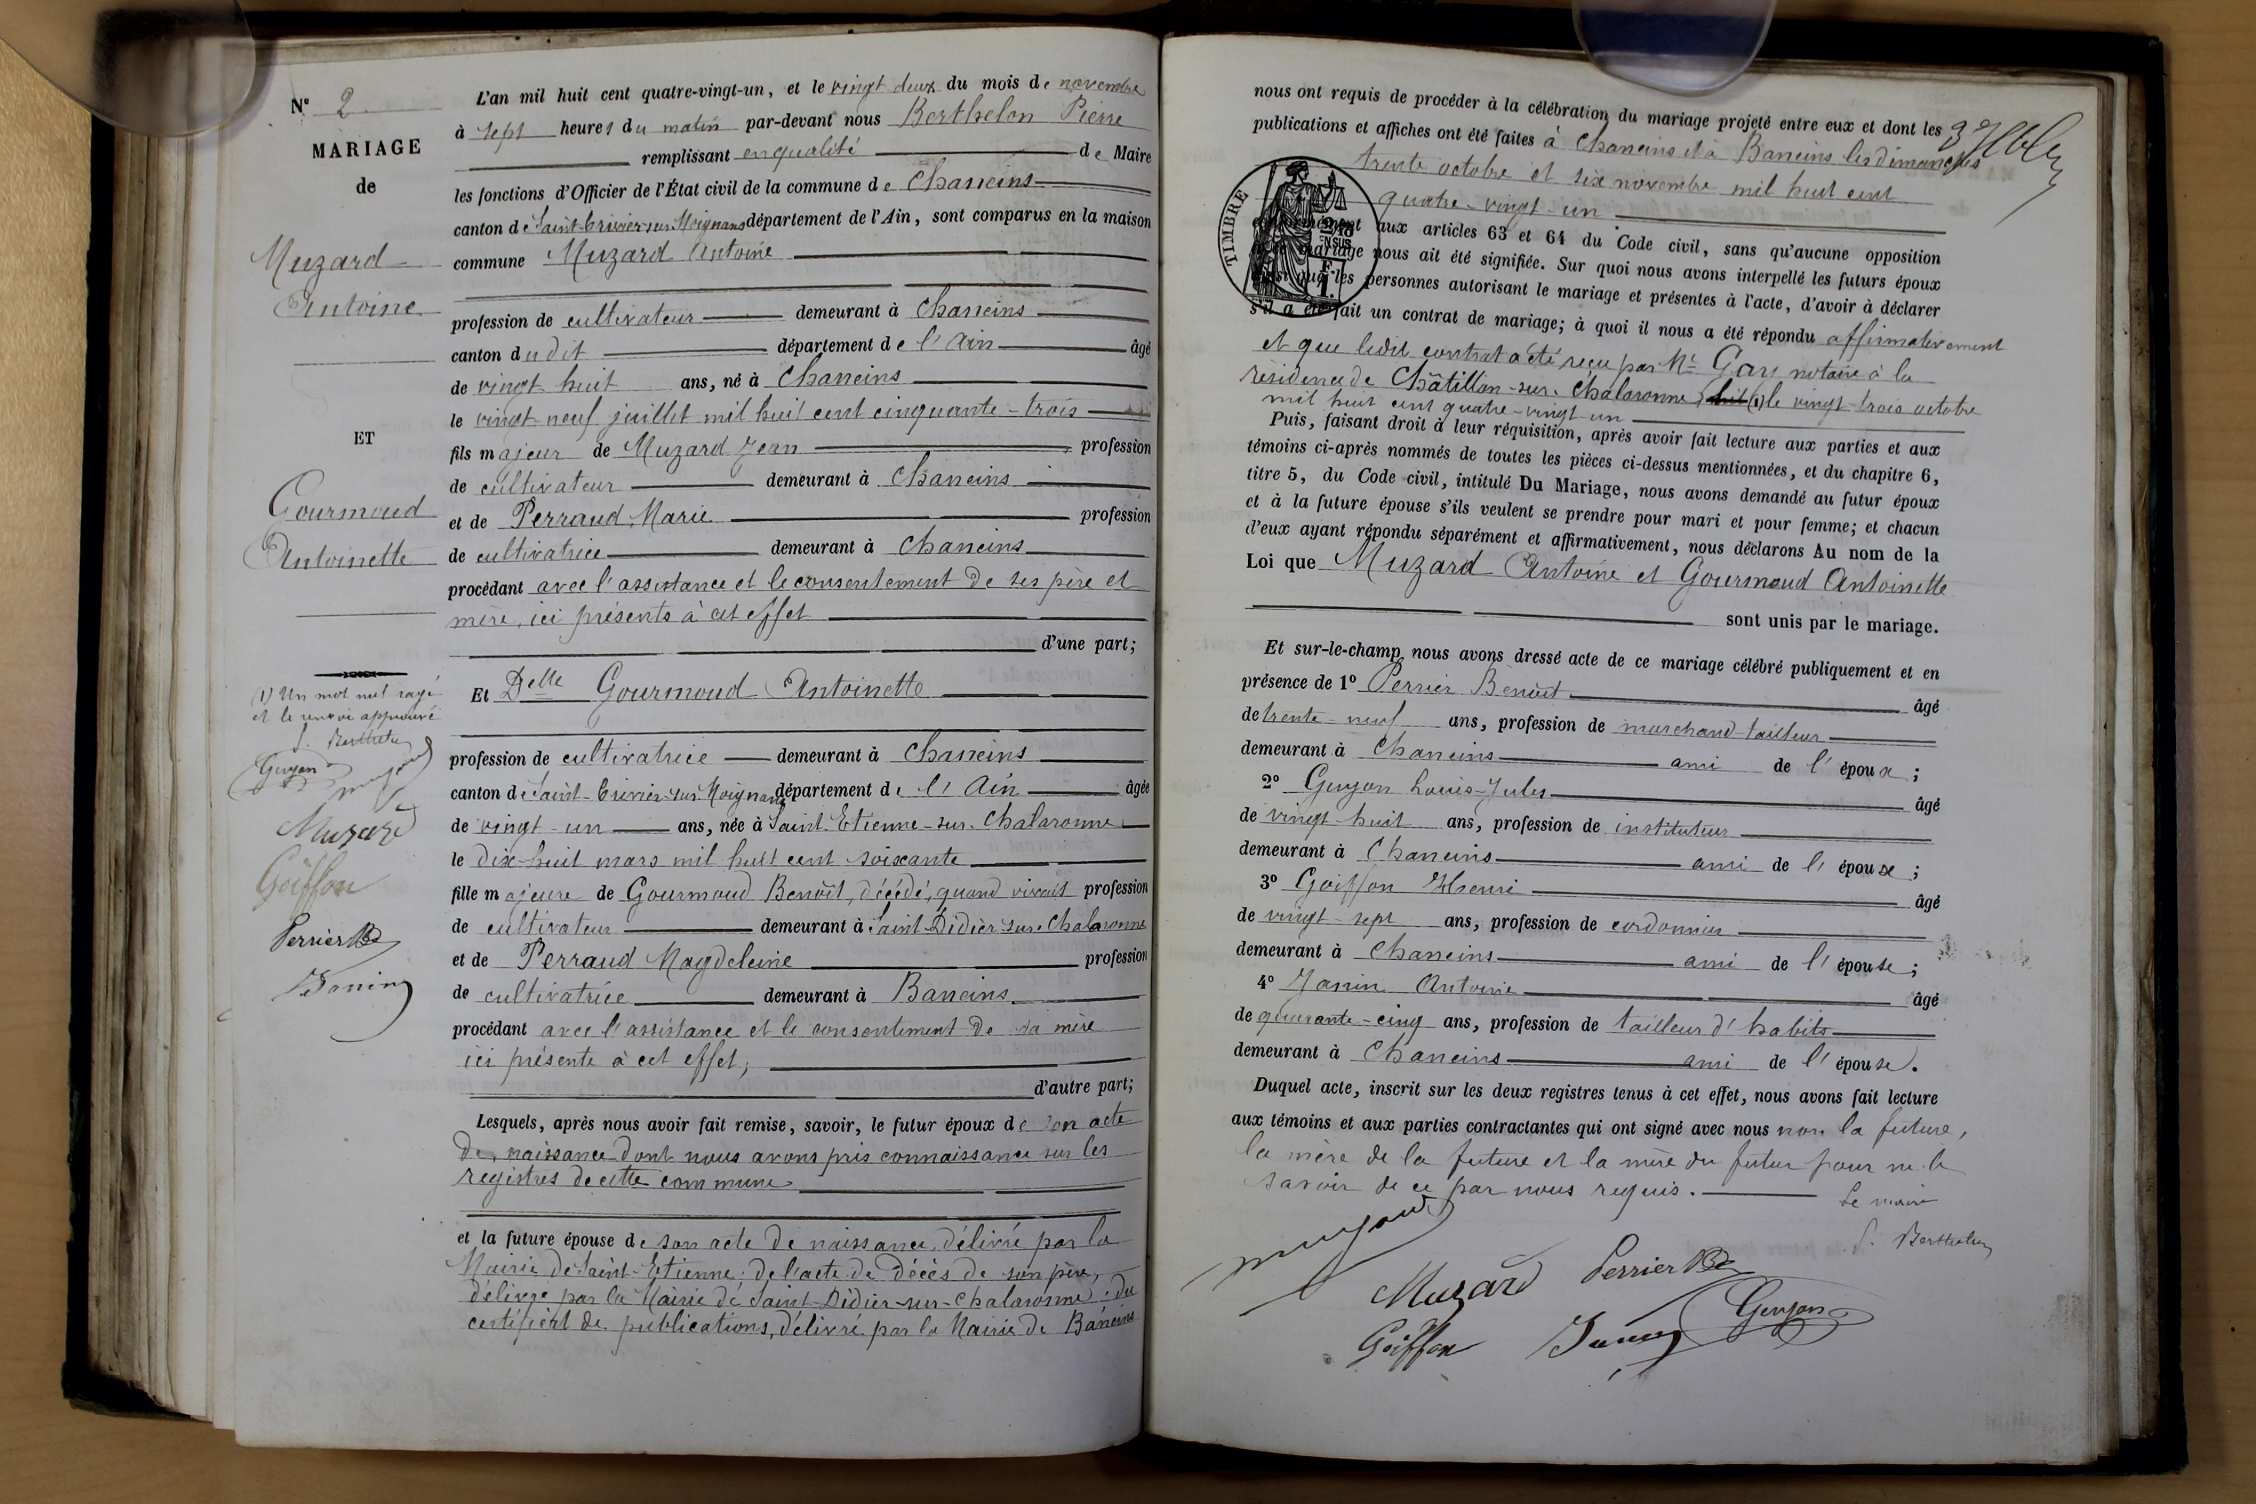 N° 2
MARIAGE
de
Muzard
Antoine
ET
Gourmoud
Antoinette
(1) Un mot nul rayé
et le renvoi approuvé
P. Berthelon
Guyon
Muzard
Goiffon
Perrier B
Janin
L'an mil huit cent quatre-vingt-un, et le vingt deux du mois de novembre
à sept heures du matin par-devant nous Berthelon Pierre
remplissant en qualité de Maire
les fonctions d'Officier de l'État civil de la commune de Chaneins
canton de Saint-Trivier-sur-Moignans département de l'Ain, sont comparus en la maison
commune Muzard Antoine
profession de cultivateur demeurant à Chaneins
canton dudit département de l'Ain âgé
de vingt huit ans, né à Chaneins
le vingt-neuf juillet mil huit cent cinquante-trois
fils majeur de Muzard Jean profession
de cultivateur demeurant à Chaneins
et de Perraud Marie profession
de cultivatrice demeurant à Chaneins
procédant avec l'assistance et le consentement de ses père et
mère, ici présents à cet effet
d'une part;
Et Delle Gourmoud Antoinette
profession de cultivatrice demeurant à Chaneins
canton de Saint-Trivier-sur-Moignans département de l'Ain âgée
de vingt-un ans, née à Saint-Etienne-sur-Chalaronne
le dix-huit mars mil huit cent soixante
fille majeure de Gourmoud Benoît, décédé, quand vivait profession
de cultivateur demeurant à Saint-Didier-sur-Chalaronne
et de Perraud Magdeleine profession
de cultivatrice demeurant à Baneins
procédant avec l'assistance et le consentement de sa mère
ici présente à cet effet;
d'autre part;
Lesquels, après nous avoir fait remise, savoir, le futur époux de son acte
de naissance dont nous avons pris connaissance sur les
registres de cette commune
et la future épouse de son acte de naissance, délivré par la
Mairie de Saint-Etienne; de l'acte de décès de son père,
délivré par la Mairie de Saint-Didier-sur-Chalaronne; du
certificat de publications, délivré par la Mairie de Baneins
nous ont requis de procéder à la célébration du mariage projeté entre eux et dont les
publications et affiches ont été faites à Chaneins et à Baneins les dimanches
trente octobre et six novembre mil huit cent
quatre-vingt-un
TIMBRE
aux articles 63 et 64 du Code civil, sans qu'aucune opposition
mariage nous ait été signifiée. Sur quoi nous avons interpellé les futurs époux
que les personnes autorisant le mariage et présentes à l'acte, d'avoir à déclarer
s'il a été fait un contrat de mariage; à quoi il nous a été répondu affirmativement
et que ledit contrat a été reçu par Me Gay notaire à la
résidence de Châtillon-sur-Chalaronne, (1) le vingt-trois octobre
mil huit cent quatre-vingt-un
Puis, faisant droit à leur réquisition, après avoir fait lecture aux parties et aux
témoins ci-après nommés de toutes les pièces ci-dessus mentionnées, et du chapitre 6,
titre 5, du Code civil, intitulé Du Mariage, nous avons demandé au futur époux
et à la future épouse s'ils veulent se prendre pour mari et pour femme; et chacun
d'eux ayant répondu séparément et affirmativement, nous déclarons Au nom de la
Loi que Muzard Antoine et Gourmoud Antoinette
sont unis par le mariage.
Et sur-le-champ nous avons dressé acte de ce mariage célébré publiquement et en
présence de 1° Perrier Benoît âgé
de trente-neuf ans, profession de marchand-tailleur
demeurant à Chaneins ami de l'époux;
2° Guyon Louis-Jules âgé
de vingt-huit ans, profession de instituteur
demeurant à Chaneins ami de l'épouse;
3° Goiffon Henri âgé
de vingt-sept ans, profession de cordonnier
demeurant à Chaneins ami de l'épouse;
4° Janin Antoine âgé
de quarante-cinq ans, profession de tailleur d'habits
demeurant à Chaneins ami de l'épouse.
Duquel acte, inscrit sur les deux registres tenus à cet effet, nous avons fait lecture
aux témoins et aux parties contractantes qui ont signé avec nous non la future,
la mère de la future et la mère du futur pour ne le
savoir de ce par nous requis.
Le maire
P. Berthelon
Muzard Perrier B
Goiffon Janin Guyon